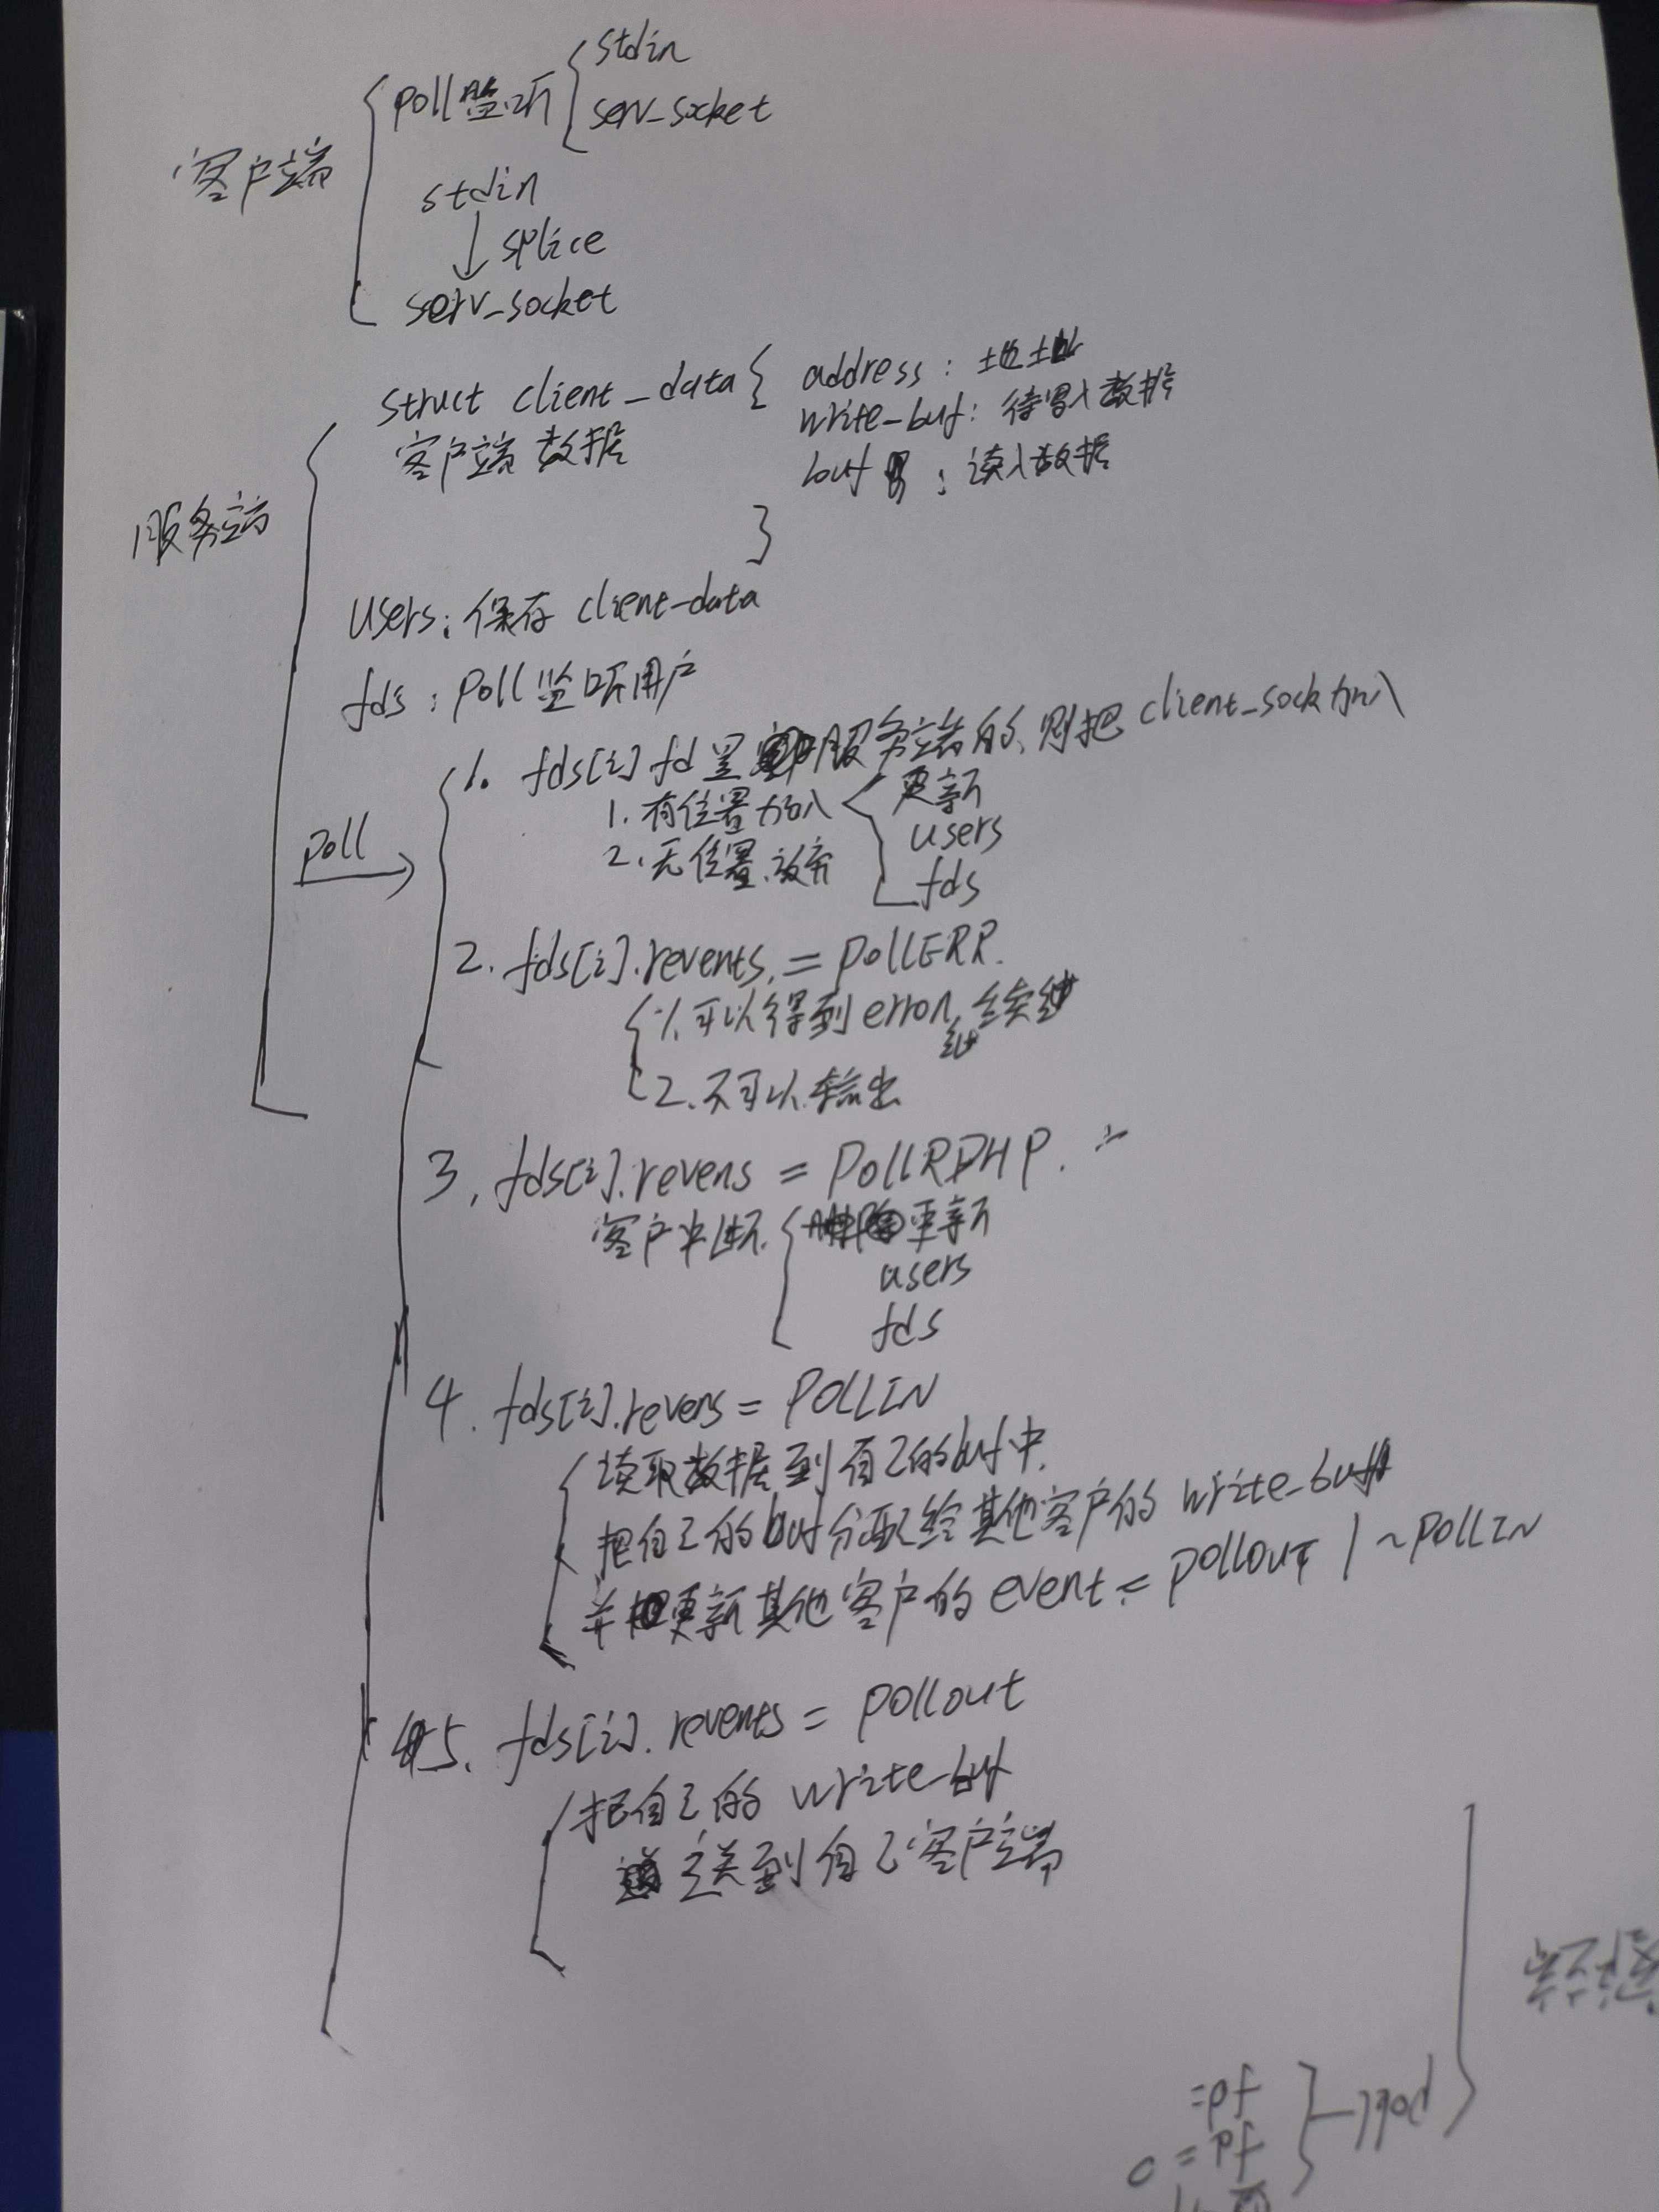 客户端
poll监听
stdin
serv_socket
stdin
splice
serv_socket
服务端
struct client_data {
address: 地址
客户端数据
write_buf: 待写入数据
buf : 读入数据
}
users: 保存 client-data
fds: poll监听用户
poll
1. fds[i] fd 是服务端的, 则把 client_sock加入
1. 有位置加入
更新
users
fds
2. 无位置, 放弃
2. fds[i].revents = pollERR.
1. 可以得到 error,
2. 不可以输出
3. fds[i].revens = pollRDHP.
客户中断.
更新
users
fds
4. fds[i].revens = POLLIN
读取数据到自己的buf中.
把自己的buf分配给其他客户的 write_buf
并更新其他客户的 event = pollout | ~POLLIN
5. fds[i]. revents = pollout
把自己的 write_buf
送到自己客户端
poll
fd =
fd = 0